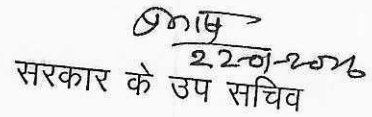 22-01-2026
सरकार के उप सचिव